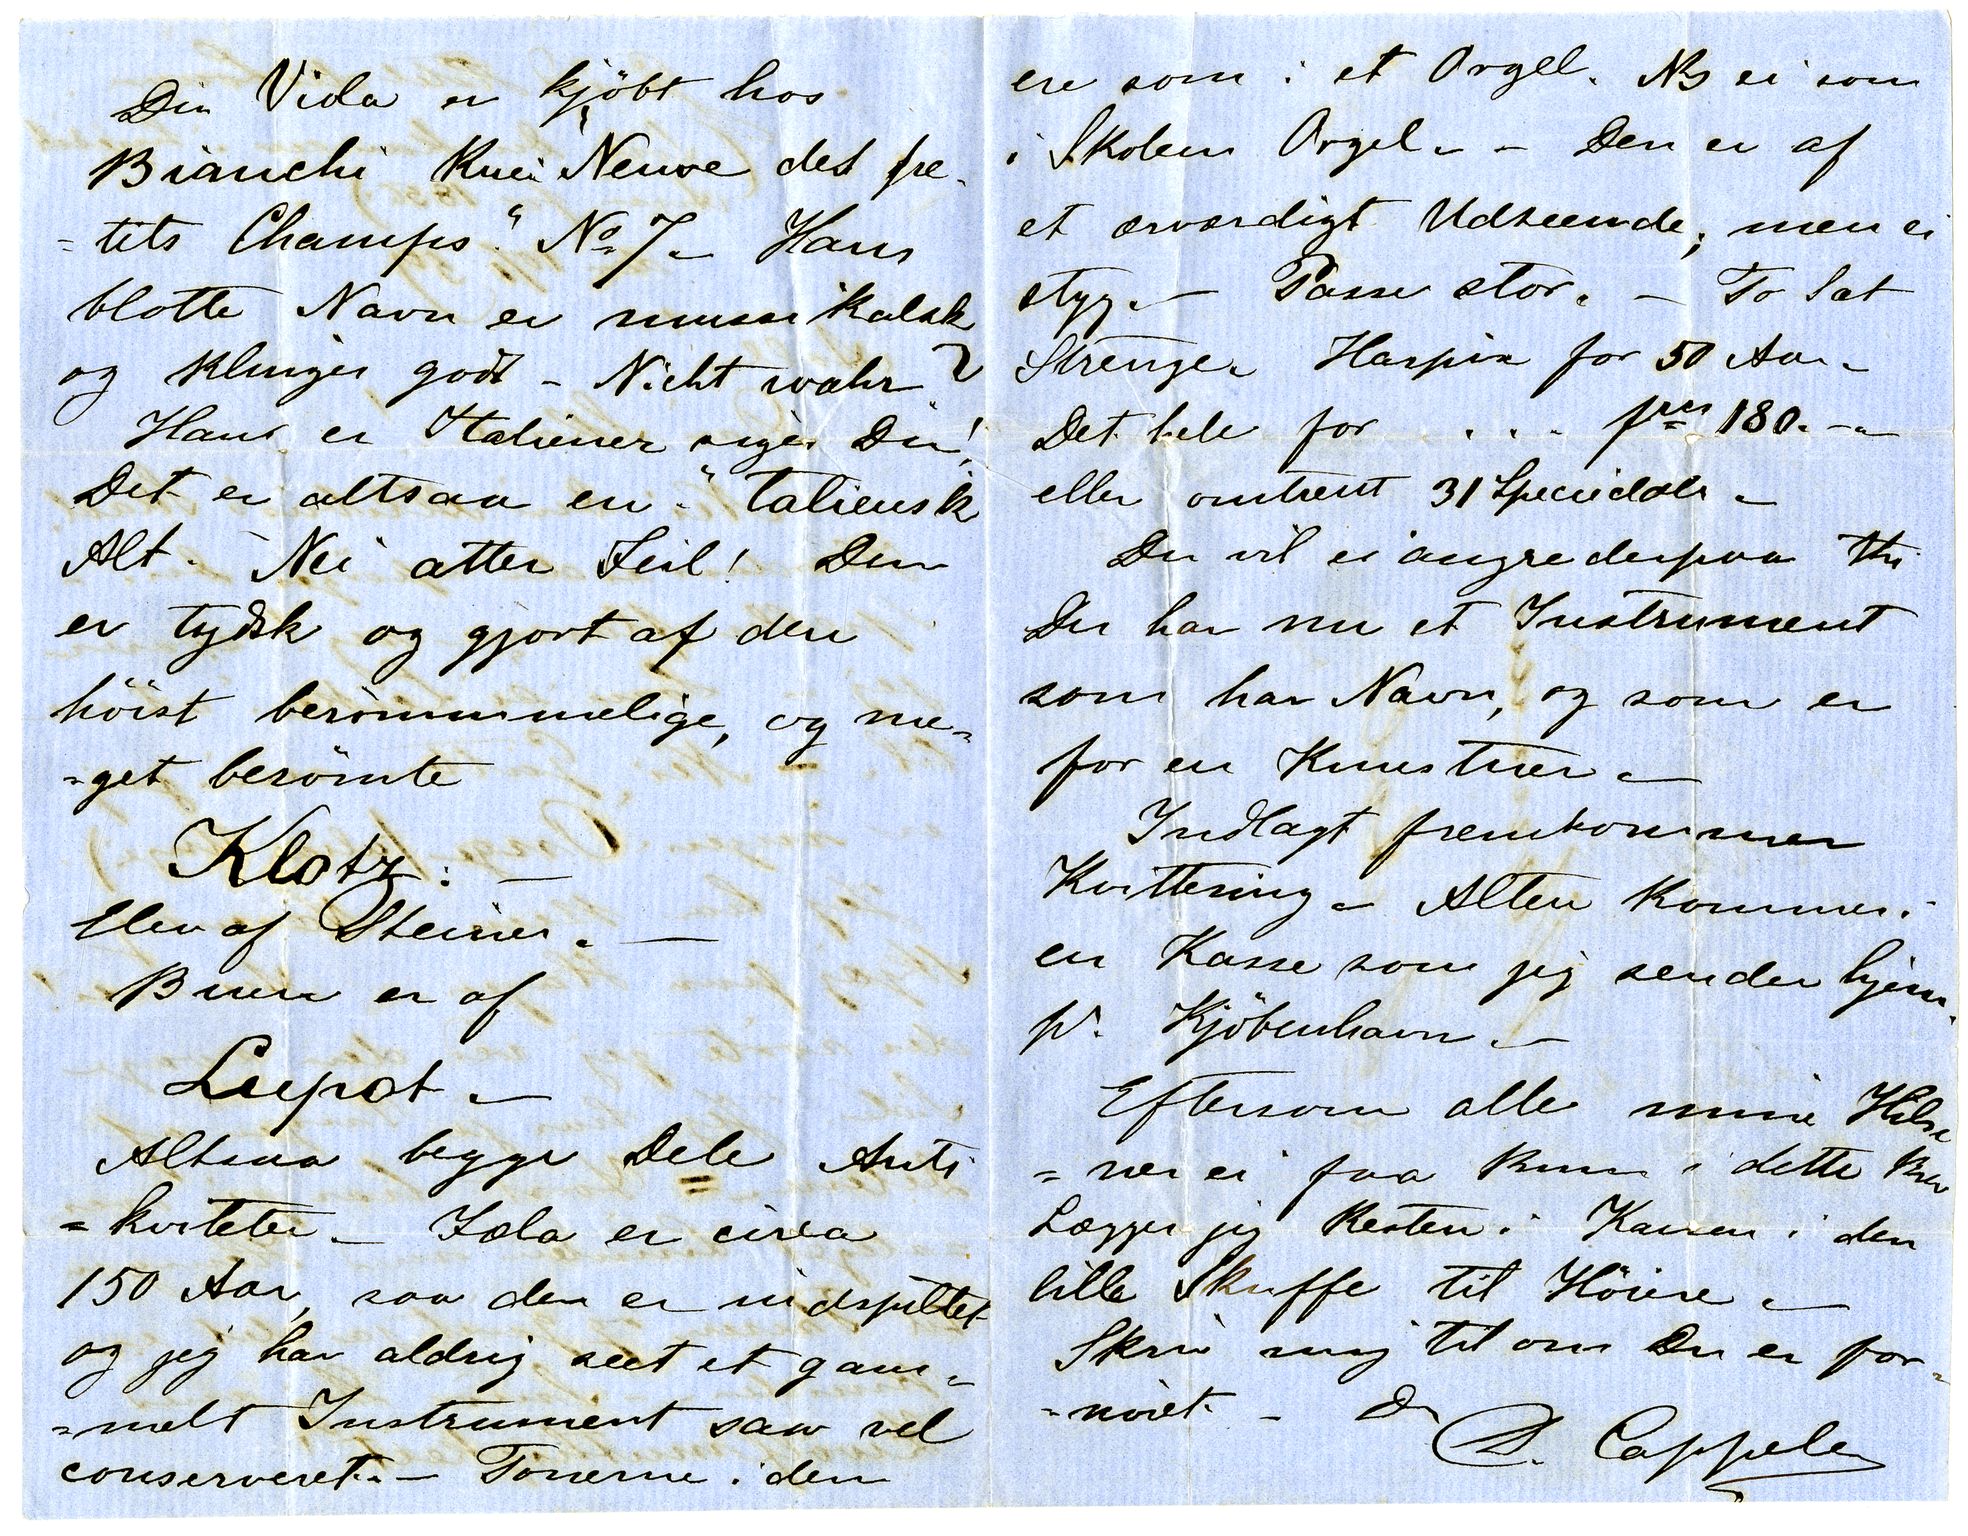 Din Viola er kjöbt hos
Bianchi Rue "Neuve des pe-
=tits Champs." No 7 – Hans
blotte Navn er musikalsk
og klinger godt – Nicht wahr?
Hans er Italiener siger Du!
Det er altsaa en "taliensk
Alt. – Nei atter Feil! Den
er tydsk og gjort af den
höist berömmelige, og me-
=get berömte
Klotz: –
Elev af Steiner. –
Buen er af
Lupot –
Altsaa begge Dele Anti
=kviteter – Fola er circa
150 Aar, saa den er indspillet
og jeg har aldrig seet et gam-
=melt Instrument saa vel
conserveret. – Tonerne i den
ere som i et Orgel. NB ei som
i Skolens Orgel. – Den er af
et ærværdigt Udseende; men ei
styg. – Passe stor. – To Sæt
Strenge. Harpix for 50 Aar –
Det hele for . . . frcs 180. –
eller omtrent 31 Speciedalr –
Du vil ei angre derpaa thi
Du har nu et Instrument
som har Navn, og som er
for en Kunstner –
Indlagt fremkommer
Kvittering – Alten kommer i
en Kasse som jeg sender hjem
pr. Kjöbenhavn. –
Eftersom alle mine Hilse
=ner ei faa Rum i dette Brev
Lægger jeg Resten i Kassen i den
lille Skuffe til Höire –
Skriv mig til om Du er for-
=nöiet. – Dn
D. Cappelen